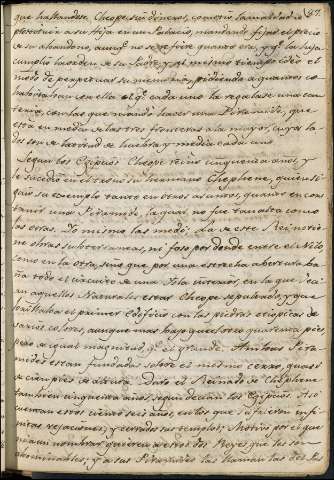 87.
que hallandose Cheope sin dineros, cometió la maldad de
prostituir a su Hija en un Palacio, mandando fijar el precio
de su abandono, aunq.e no se refire quanto era, y q.e la hija
cumplió la orden de su Padre, y al mismo tiempo ideó el
modo de perpetuar su memoria, pidiendo a quantos co
habitaban con ella el q.e cada uno la regalase una can
tería, con las que mandó hacer una Piramide, que
está en medio de las tres fronteras a la mayor, cuyos la
dos son de la otra de huebra y media cada uno
Segun los Egipcios Cheope reinó cinquenta años, y
le sucedió en el trono su hermano Chephene, quien si
guió su exemplo tanto en otros asuntos, quanto en cons
truir una Piramide, la qual no fue tan alta como
las otras. Yo mismo las medí; La de este Rei no tie
ne obras subterraneas, ni foso por donde entre el Nilo
como en la otra, sino que por una estrecha abertura ba
ña todo el circuito de una Isla interior, en la que di
cen aquellos Naturales estar Cheope sepultado, y que
construió el primer Edificio con las piedras etiopicas de
varios colores, aunque mas bajo que la otra quarenta pies
pero de igual magnitud q.e el grande. Ambas Pira
mides estan fundadas sobre el mismo cerro, quasi
de cien pies de altura. Duró el Reinado de Chephene
tambien cinquenta años segun decian los Egipcios. Asi
cuentan estos ciento seis años, en los que sufrieron infi
nitas vejaciones, y cerrados sus templos; Motivo por el que
ni aun nombrar quieren a estos dos Reyes que les son
abominables, y a sus Piramides las llaman las del Pas